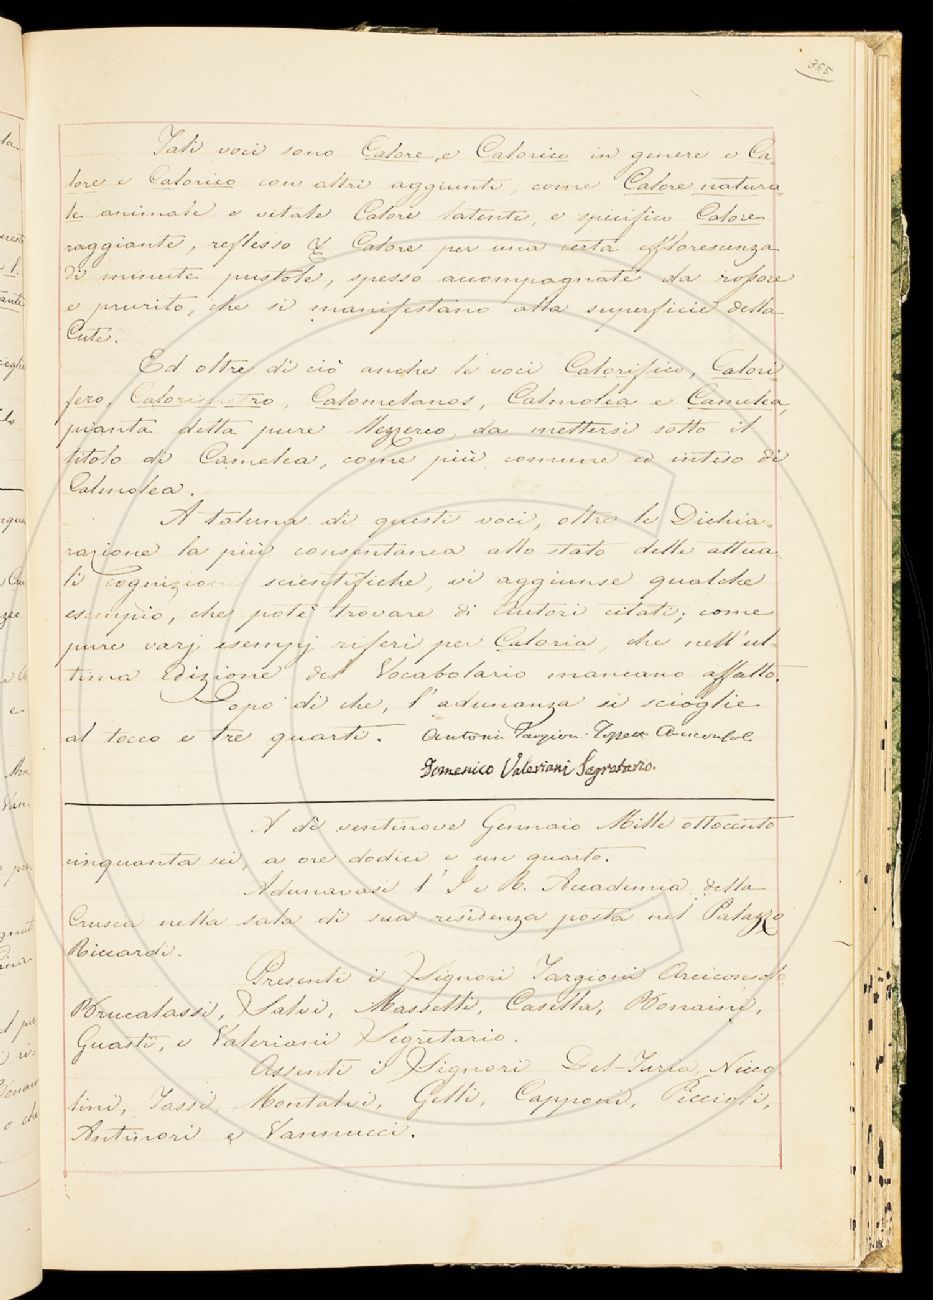 365
Tali voci sono Calore, e Calorico in genere e Ca-
lore e Calorico con altri aggiunti, come Calore natura-
le animale e vitale Calore latente, e specifico Calore
raggiante, reflesso &c Calore per una certa efflorescenza
di minute pustole, spesso accompagnate da rossore
e prurito, che si manifestano alla superficie della
Cute.
Ed oltre di ciò anche le voci Calorifico, Calori-
fero, Calorimetro, Calomelanos, Calmolea e Camelea,
pianta detta pure Mezzereo, da mettersi sotto il
titolo di Camelea, come più comune ed inteso di
Calmolea.
A taluna di questi voci, oltre le Dichia-
razione la più consentanea allo stato delle attua-
li cognizioni scientifiche, vi aggiunse qualche
esempio, che potè trovare di Autori citati; come
pure varj esempj riferì per Caloria, che nell'ul-
tima Edizione del Vocabolario mancano affatto.
Dopo di che, l'adunanza si scioglie
al tocco e tre quarti. Antonio Targioni Tozzetti Arciconsolo
Domenico Valeriani Segretario.
A dì ventinove Gennaio Mille ottocento
cinquanta sei, a ore dodici e un quarto.
Adunavasi l'I e R. Accademia della
Crusca nella sala di sua residenza posta nel Palazzo
Riccardi.
Presenti i Signori Targioni Arciconsolo,
Brucalassi, Salvi, Masselli, Casella, Bonaini,
Guasti, e Valeriani Segretario.
Assenti i Signori Del-Furia, Nicco
lini, Tassi, Montalvi, Gelli, Capponi, Piccioli,
Antinori e Vannucci.